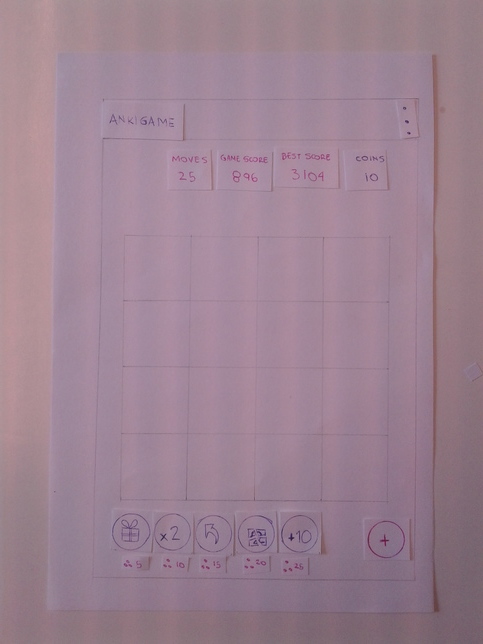 ANKIGAME
MOVES
25
GAME SCORE
896
BEST SCORE
3104
COINS
10
x2
+10
5
10
15
20
25
+